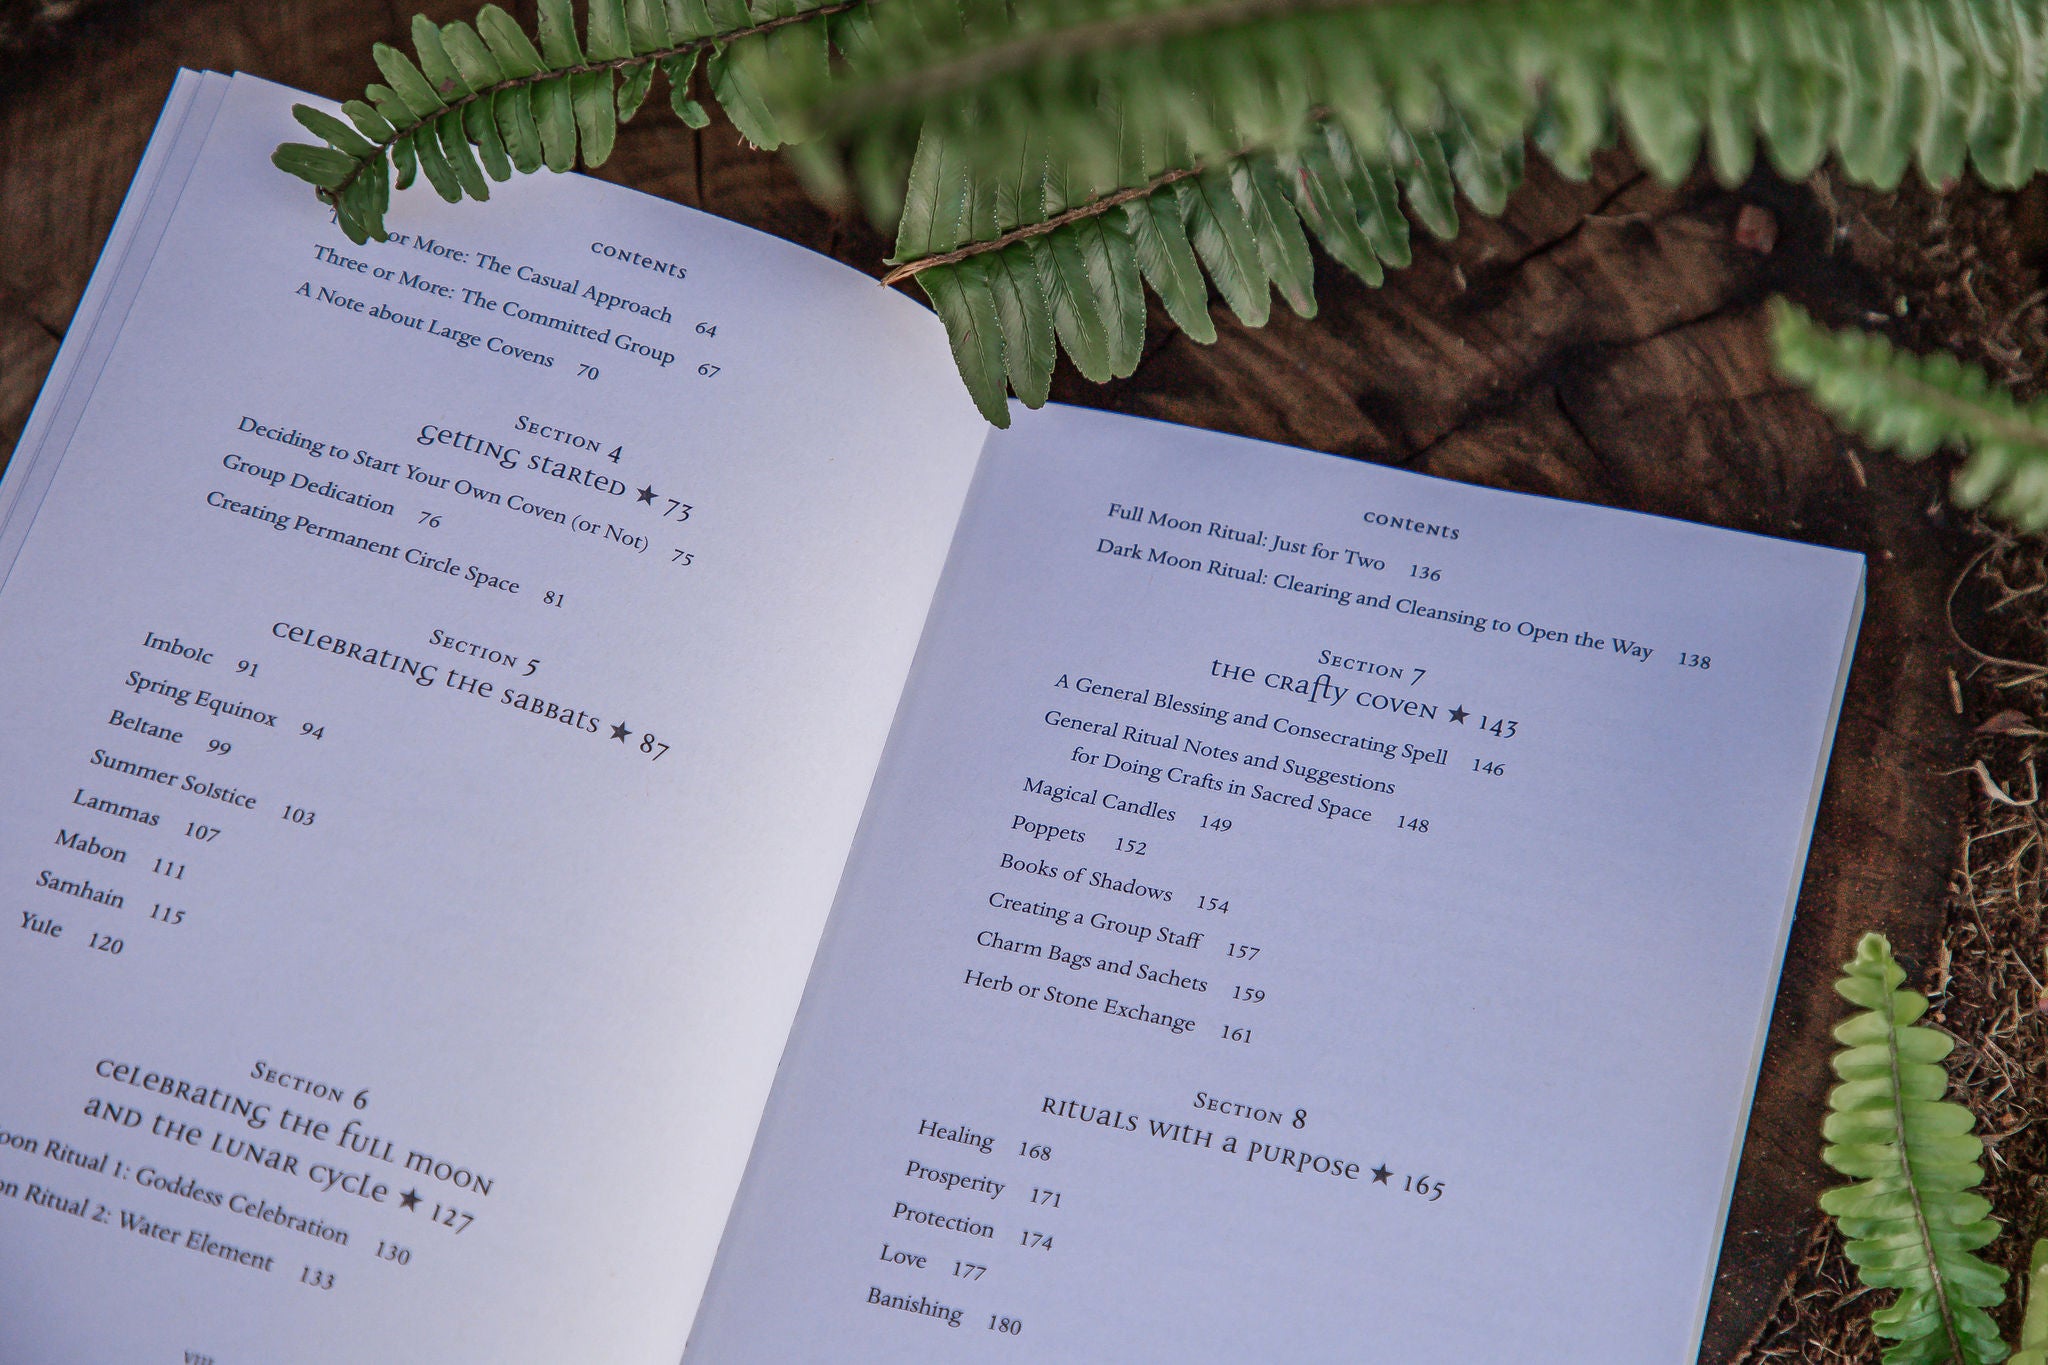 CONTENTS
or More: The Casual Approach 64
Three or More: The Committed Group 67
A Note about Large Covens 70
Section 4
Getting Started ★ 73
Deciding to Start Your Own Coven (or Not) 75
Group Dedication 76
Creating Permanent Circle Space 81
Section 5
Celebrating the Sabbats ★ 87
Imbolc 91
Spring Equinox 94
Beltane 99
Summer Solstice 103
Lammas 107
Mabon 111
Samhain 115
Yule 120
Section 6
Celebrating the Full Moon
and the Lunar Cycle ★ 127
oon Ritual 1: Goddess Celebration 130
on Ritual 2: Water Element 133
VIII
CONTENTS
Full Moon Ritual: Just for Two 136
Dark Moon Ritual: Clearing and Cleansing to Open the Way 138
Section 7
The Crafty Coven ★ 143
A General Blessing and Consecrating Spell 146
General Ritual Notes and Suggestions
for Doing Crafts in Sacred Space 148
Magical Candles 149
Poppets 152
Books of Shadows 154
Creating a Group Staff 157
Charm Bags and Sachets 159
Herb or Stone Exchange 161
Section 8
Rituals with a Purpose ★ 165
Healing 168
Prosperity 171
Protection 174
Love 177
Banishing 180